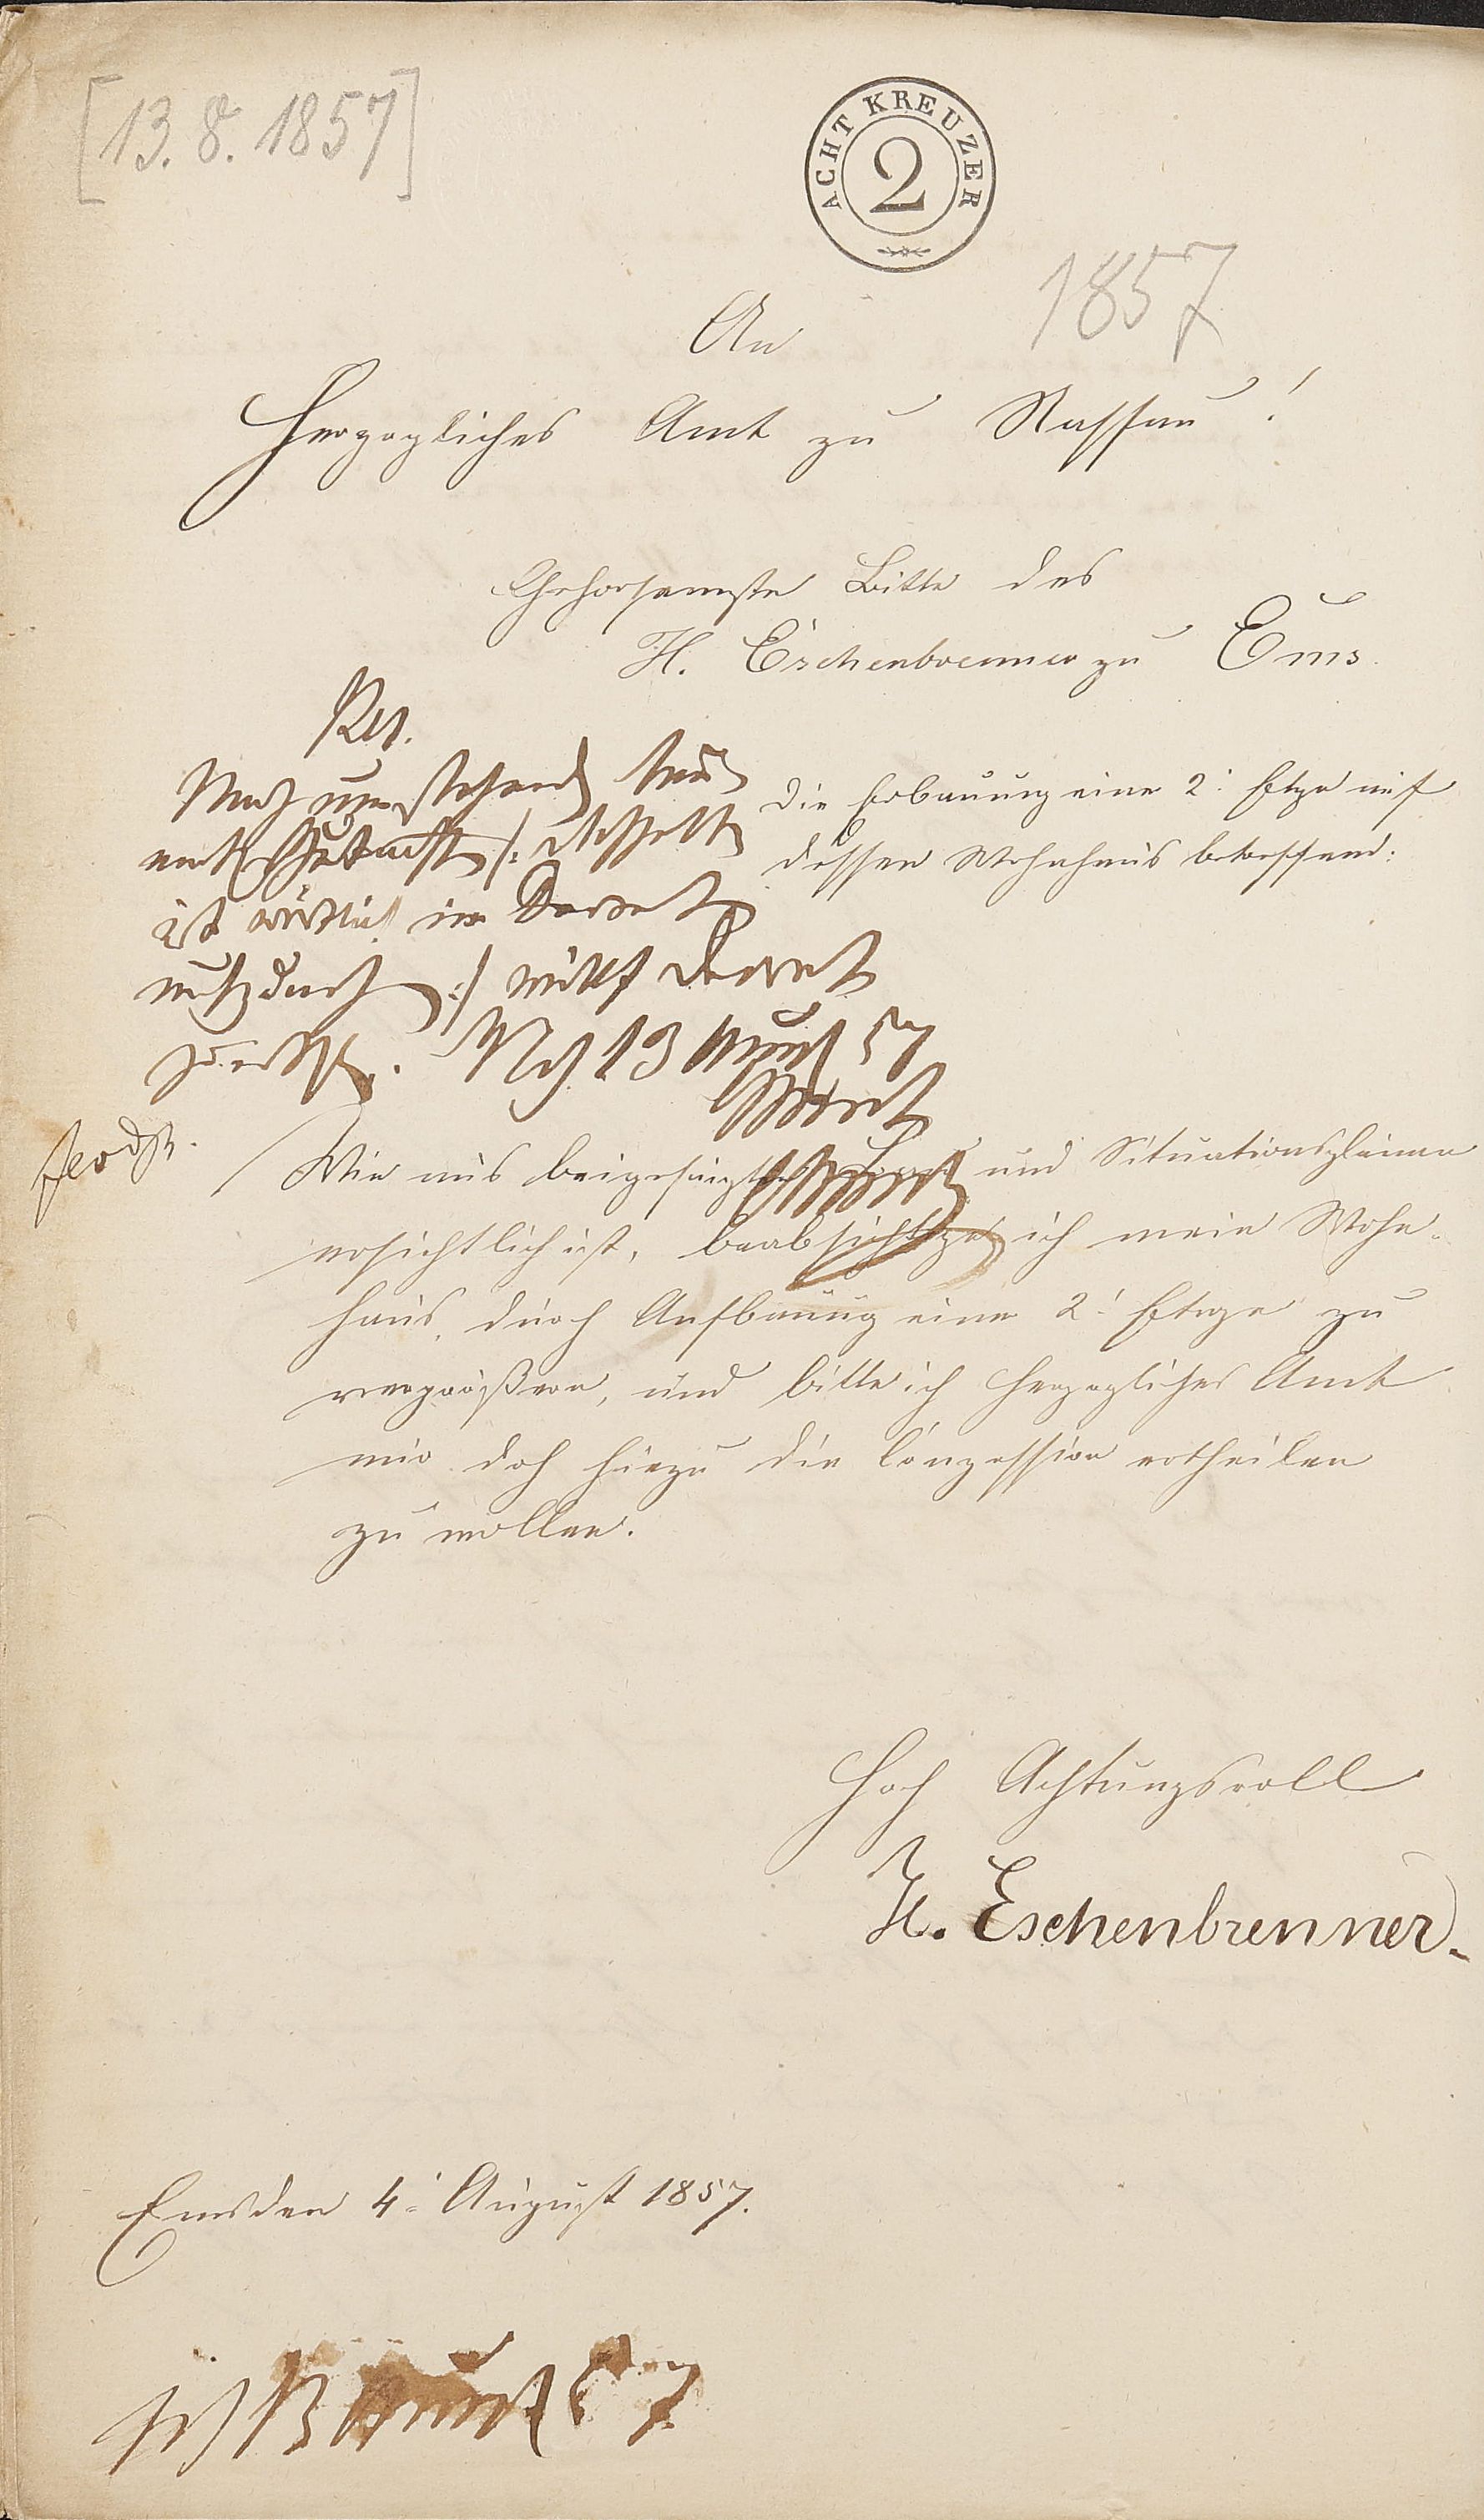 [13. 8. 1857]
ACHT KREUZER
2
1857
An
Herzogliches Amt zu Nassau!
Gehorsamste Bitte des
H. Eschenbrenner zu Ems.
Die Erbauung einer 2. Etage auf
dessen Wohnhaus betreffend:
Res.
Nach umstehendem
ist wörtlich im Decret
zu . 13 August 57
Wie aus beigefügten und Situationsplänen
ersichtlich ist, beabsichtige ich mein Wohn-
haus, durch Aufbauung einer 2. Etage zu
vergrößern, und bitte ich Herzogliches Amt
mir doch hiezu die Conzession ertheilen
zu wollen.
Hoch Achtungsvoll
H. Eschenbrenner.
Ems den 4. August 1857.
13 August 57